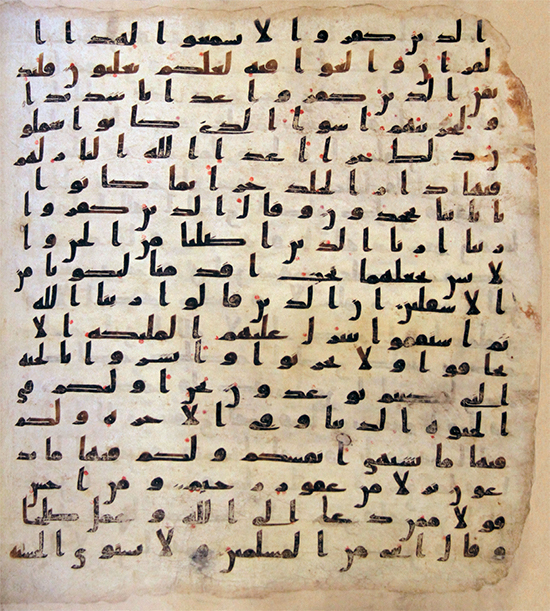 الذين كفروا لا تسمعوا لهذا ا
لقران والغوا فيه لعلكم تغلبون فلنذ
يقن الذين كفروا عذابا شديدا
ولنجزينهم اسوا الذي كانوا يعملو
ن ذلك جزا اعدا الله النار لهم
فيها دار الخلد جزا بما كانوا
باياتنا يجحدون وقال الذين كفروا
ربنا ارنا الذين اضلنا من الجن وا
لانس نجعلهما تحت اقدمنا ليكونا من
الاسفلين ان الذين قالوا ربنا الله
ثم استقموا تتنزل عليهم الملئكة الا
تخافوا ولا تحزنوا وابشروا بالجنة
التي كنتم توعدون نحن اوليكم في
الحيوة الدنيا وفي الاخرة ولكم
فيها ما تشتهي انفسكم ولكم فيها ما تد
عون نزلا من غفور رحيم ومن احسن
قولا ممن دعا الى الله وعمل صلحا
وقال انني من المسلمين ولا تستوي الحسنة